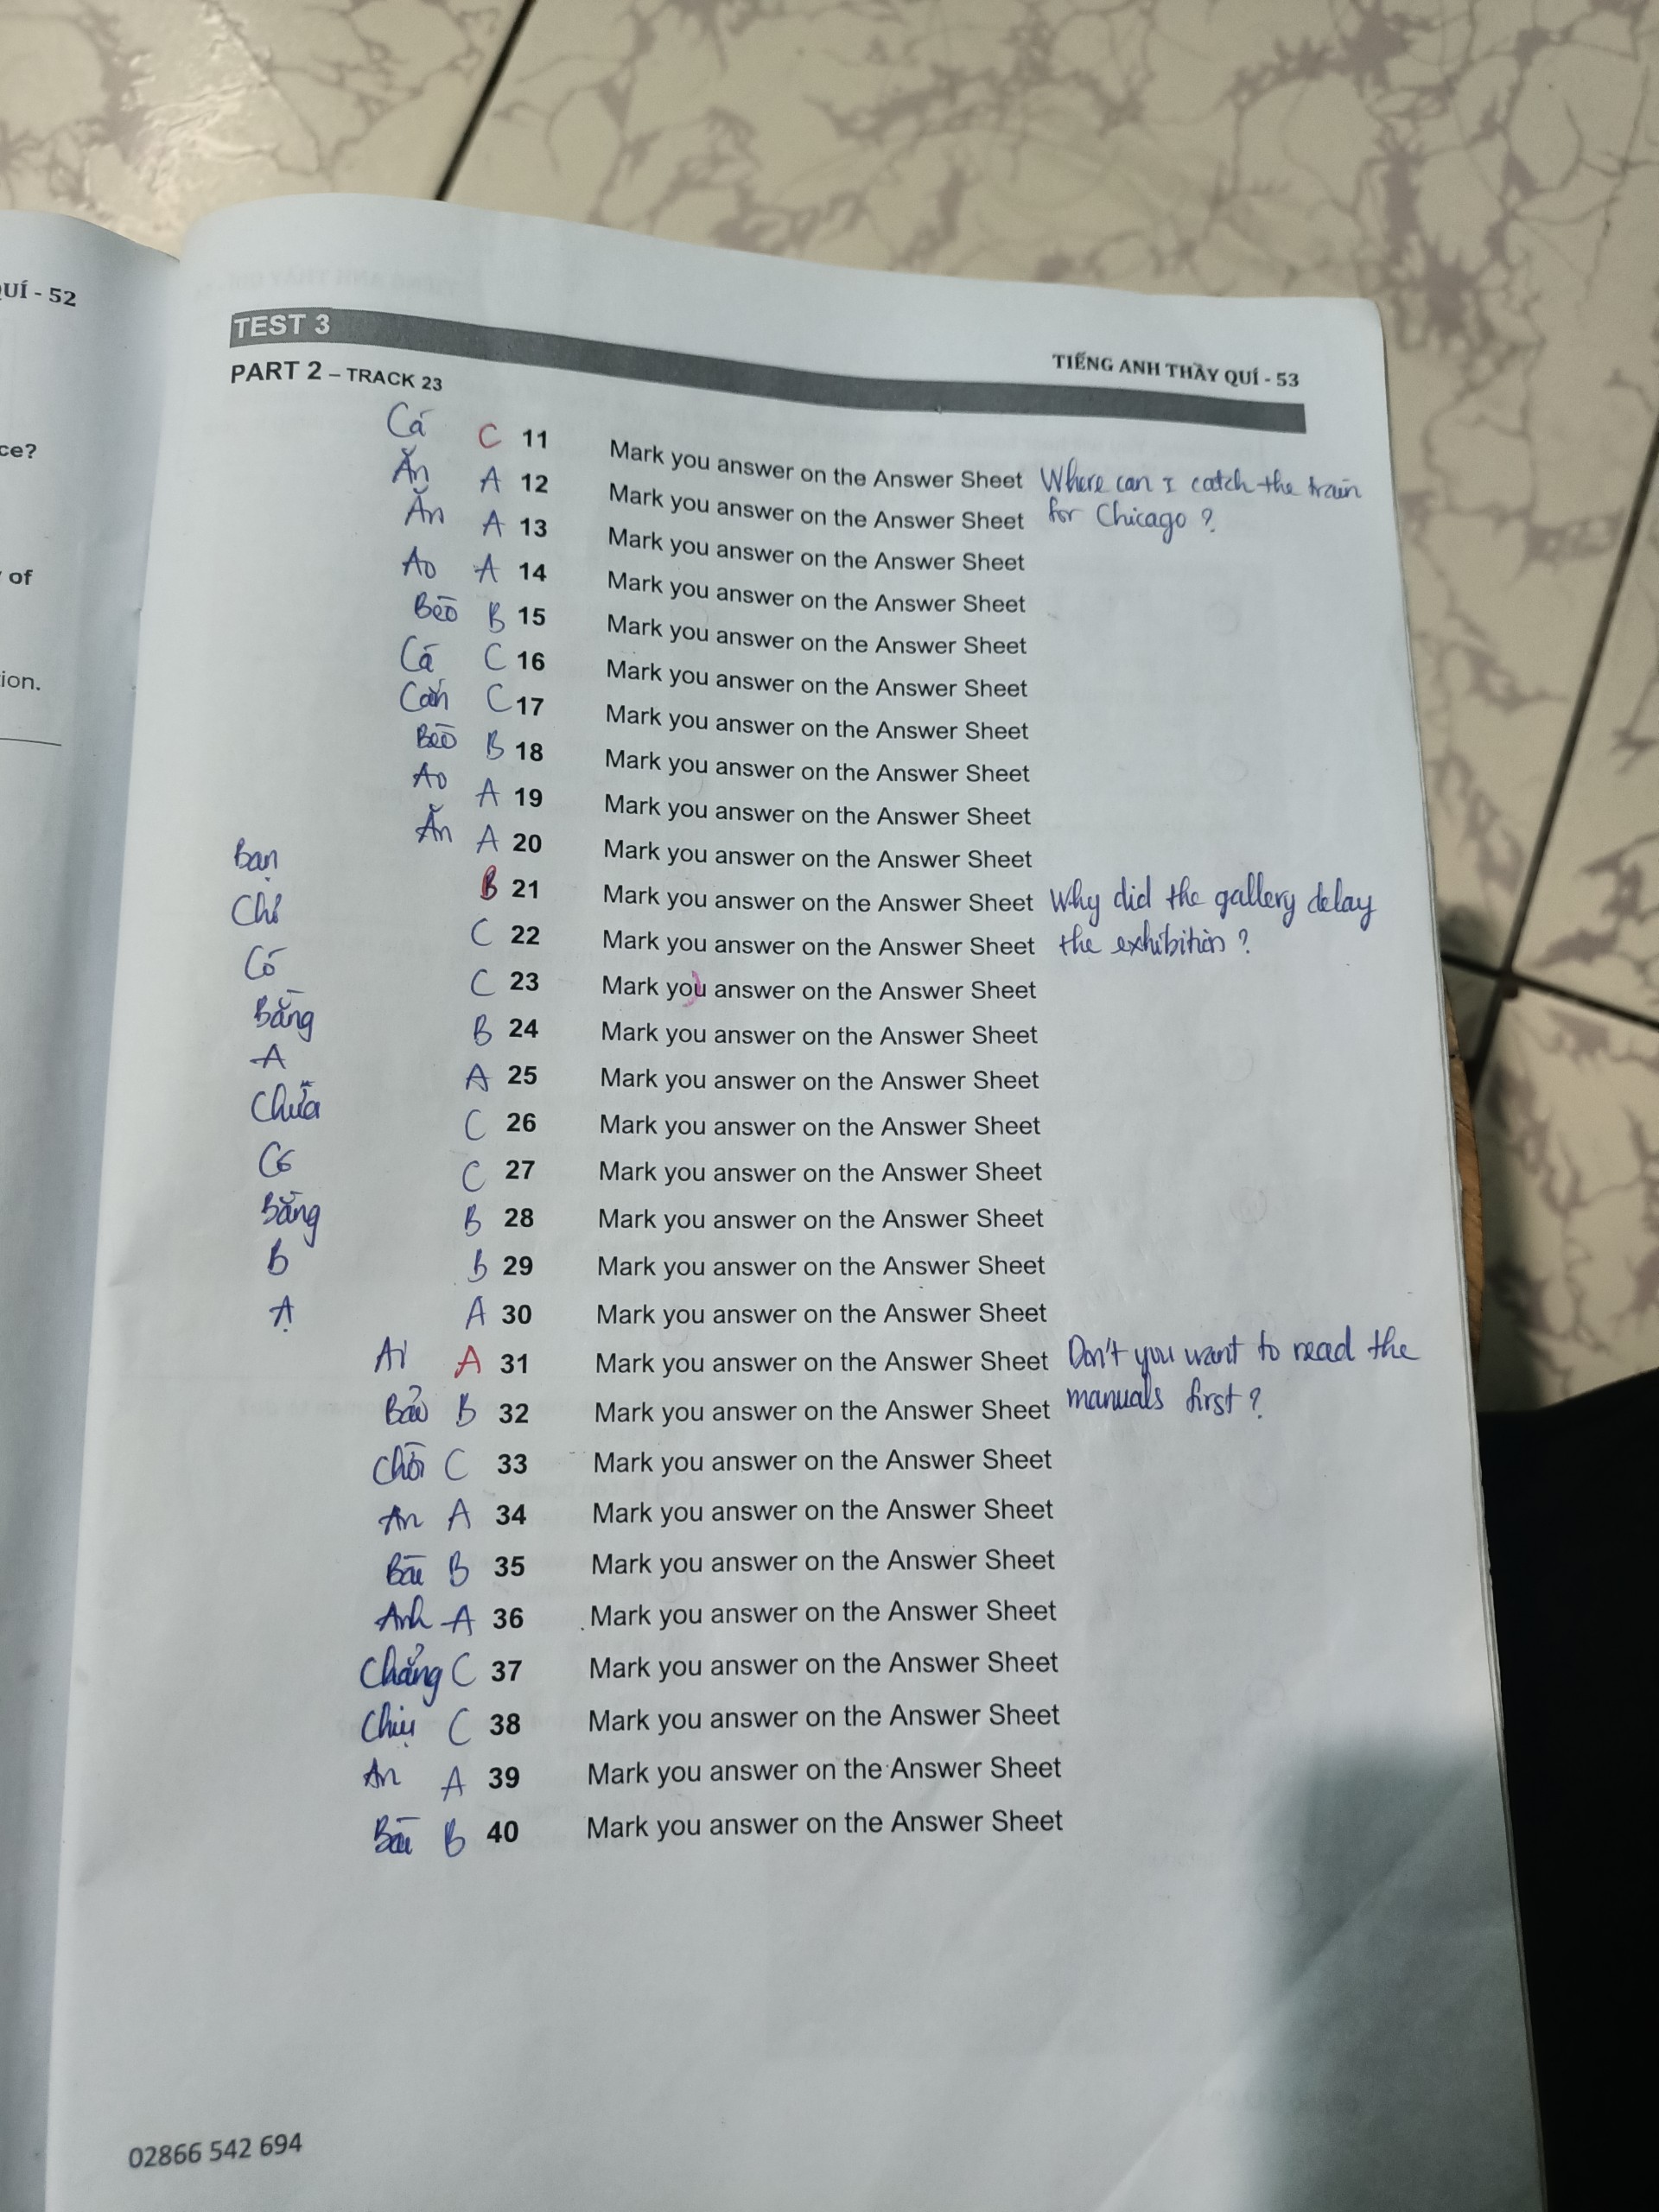 UÍ - 52
ce?
of
ion.
TEST 3
TIẾNG ANH THẦY QUÍ - 53
PART 2 – TRACK 23
Cá C 11 Mark you answer on the Answer Sheet Where can I catch the train
Ăn A 12 Mark you answer on the Answer Sheet for Chicago ?
Ăn A 13 Mark you answer on the Answer Sheet
Ao A 14 Mark you answer on the Answer Sheet
Bèo B 15 Mark you answer on the Answer Sheet
Cá C 16 Mark you answer on the Answer Sheet
Cắn C 17 Mark you answer on the Answer Sheet
Bèo B 18 Mark you answer on the Answer Sheet
Ao A 19 Mark you answer on the Answer Sheet
Ăn A 20 Mark you answer on the Answer Sheet
Bạn B 21 Mark you answer on the Answer Sheet Why did the gallery delay
Chỉ C 22 Mark you answer on the Answer Sheet the exhibition ?
Có C 23 Mark you answer on the Answer Sheet
Bằng B 24 Mark you answer on the Answer Sheet
A A 25 Mark you answer on the Answer Sheet
Chữa C 26 Mark you answer on the Answer Sheet
Có C 27 Mark you answer on the Answer Sheet
Bằng B 28 Mark you answer on the Answer Sheet
B B 29 Mark you answer on the Answer Sheet
Ạ A 30 Mark you answer on the Answer Sheet
Ai A 31 Mark you answer on the Answer Sheet Don't you want to read the
Bảo B 32 Mark you answer on the Answer Sheet manuals first ?
Chồi C 33 Mark you answer on the Answer Sheet
An A 34 Mark you answer on the Answer Sheet
Bài B 35 Mark you answer on the Answer Sheet
Anh A 36 Mark you answer on the Answer Sheet
Chẳng C 37 Mark you answer on the Answer Sheet
Chịu C 38 Mark you answer on the Answer Sheet
An A 39 Mark you answer on the Answer Sheet
Bài B 40 Mark you answer on the Answer Sheet
02866 542 694